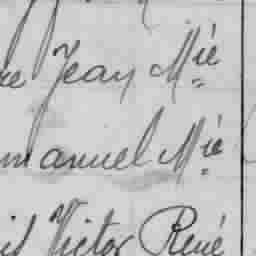 re Jean M^ie
manuel M^ie
is Victor René